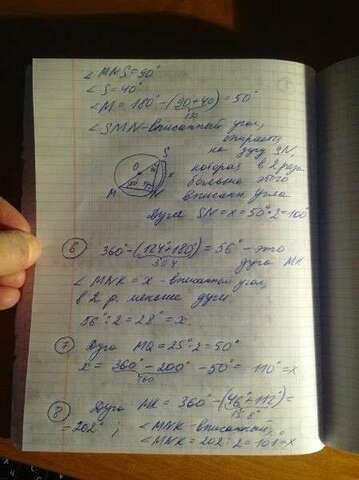 ∠MNS=90°
∠S=40°
∠M=180°-(90+40)=50°
130
∠SMN-вписанный угол,
опирается
на дугу SN
которая в 2 раза
больше этого
вписанн угла
Дуга SN=x=50°·2=100
S
O
M
N
x
6 360°-(124°+180)=56°-это
304
дуга MK
∠MNK=x-вписанный угол,
в 2 р. меньше дуги
56°:2=28°=x
7 Дуга MQ=25°·2=50°
x=360°-200°-50°=110°=x
160
8 Дуга MK=360°-(46°+112°)=
158°
=202°; ∠MNK-вписанный,
∠MNK=202:2=101°=x